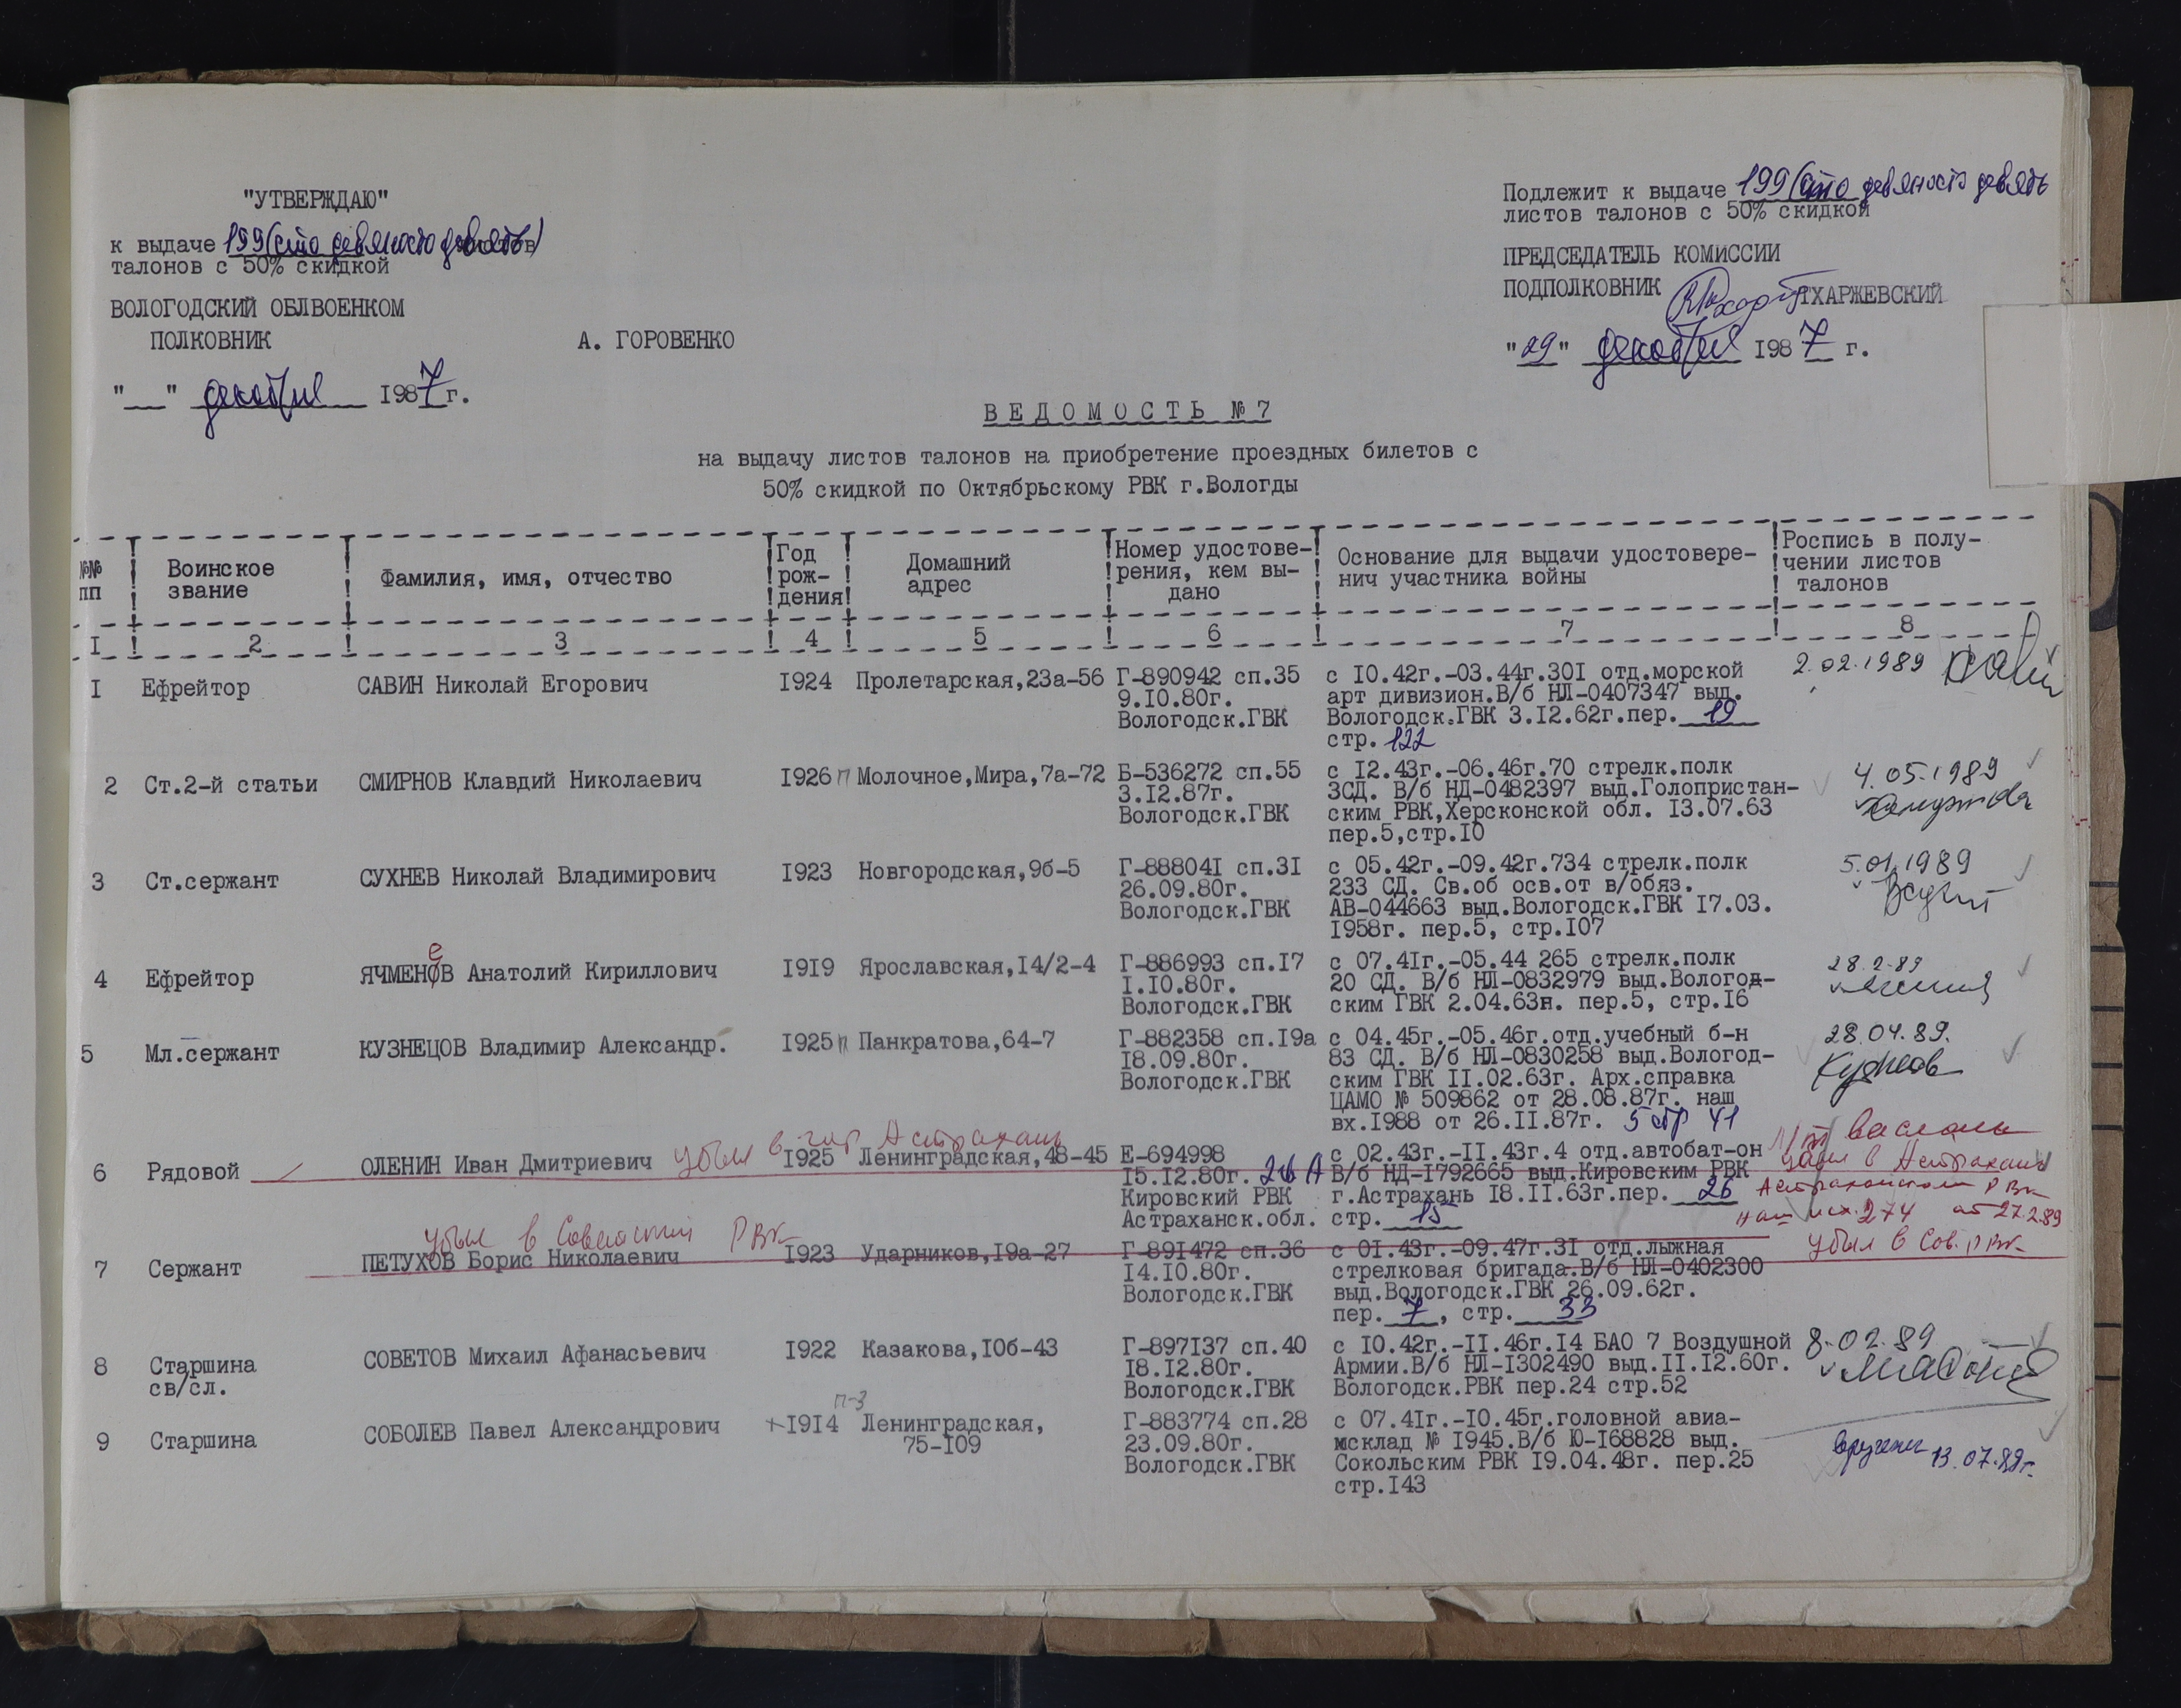 "УТВЕРЖДАЮ"
к выдаче 199 (сто девяносто девять) листов
талонов с 50% скидкой
ВОЛОГОДСКИЙ ОБЛВОЕНКОМ
ПОЛКОВНИК А. ГОРОВЕНКО
"__" декабря 1987 г.
Подлежит к выдаче 199 (сто девяносто девять
листов талонов с 50% скидкой
ПРЕДСЕДАТЕЛЬ КОМИССИИ
ПОДПОЛКОВНИК ТХАРЖЕВСКИЙ
"29" декабря 1987 г.
ВЕДОМОСТЬ №7
на выдачу листов талонов на приобретение проездных билетов с
50% скидкой по Октябрьскому РВК г.Вологды
№№ пп
Воинское звание
Фамилия, имя, отчество
Год рож-
дения
Домашний адрес
Номер удостове-
рения, кем вы-
дано
Основание для выдачи удостовере-
нич участника войны
Роспись в полу-
чении листов
талонов
I 2 3 4 5 6 7 8
I Ефрейтор САВИН Николай Егорович I924 Пролетарская,23а-56 Г-890942 сп.35 с I0.42г.-03.44г.30I отд.морской 2.02.1989
9.I0.80г. арт дивизион.В/б НЛ-0407347 выд.
Вологодск.ГВК Вологодск.ГВК 3.I2.62г.пер. 19
стр. 122
2 Ст.2-й статьи СМИРНОВ Клавдий Николаевич I926 п Молочное,Мира,7а-72 Б-536272 сп.55 с I2.43г.-06.46г.70 стрелк.полк 4.05.1989
3.I2.87г. 3СД. В/б НД-0482397 выд.Голопристан-
Вологодск.ГВК ским РВК,Херсконской обл. I3.07.63
пер.5,стр.I0
3 Ст.сержант СУХНЕВ Николай Владимирович I923 Новгородская,9б-5 Г-88804I сп.3I с 05.42г.-09.42г.734 стрелк.полк 5.01.1989
26.09.80г. 233 СД. Св.об осв.от в/обяз.
Вологодск.ГВК АВ-044663 выд.Вологодск.ГВК I7.03.
I958г. пер.5, стр.I07
е
4 Ефрейтор ЯЧМЕНОВ Анатолий Кириллович I9I9 Ярославская,I4/2-4 Г-886993 сп.I7 с 07.4Iг.-05.44 265 стрелк.полк 28.2.89
I.I0.80г. 20 СД. В/б НЛ-0832979 выд.Вологод-
Вологодск.ГВК ским ГВК 2.04.63н. пер.5, стр.I6
5 Мл.сержант КУЗНЕЦОВ Владимир Александр. I925 п Панкратова,64-7 Г-882358 сп.I9а с 04.45г.-05.46г.отд.учебный б-н 28.04.89.
I8.09.80г. 83 СД. В/б НЛ-0830258 выд.Вологод-
Вологодск.ГВК ским ГВК II.02.63г. Арх.справка
ЦАМО № 509862 от 28.08.87г. наш
вх.I988 от 26.II.87г. 5 стр 41
убыл в гор Астрахань
6 Рядовой ОЛЕНИН Иван Дмитриевич I925 Ленинградская,48-45 Е-694998 с 02.43г.-II.43г.4 отд.автобат-он
I5.I2.80г. В/б НД-I792665 выд.Кировским РВК убыл в Астрахань
Кировский РВК г.Астрахань I8.II.63г.пер. 26 Астраханский РВК
Астраханск.обл. стр. 15 наш исх.274 от 27.2.89
убыл в Советский РВК
7 Сержант ПЕТУХОВ Борис Николаевич I923 Ударников,I9а-27 Г-89I472 сп.36 с 0I.43г.-09.47г.3I отд.лыжная убыл в Сов. РВК
I4.I0.80г. стрелковая бригада.В/б НЛ-0402300
Вологодск.ГВК выд.Вологодск.ГВК 26.09.62г.
пер. 7, стр. 33
8 Старшина СОВЕТОВ Михаил Афанасьевич I922 Казакова,I0б-43 Г-897I37 сп.40 с I0.42г.-II.46г.I4 БАО 7 Воздушной 8.02.89
св/сл. I8.I2.80г. Армии.В/б НЛ-I302490 выд.II.I2.60г.
Вологодск.ГВК Вологодск.РВК пер.24 стр.52
п-3
9 Старшина СОБОЛЕВ Павел Александрович +I9I4 Ленинградская, Г-883774 сп.28 с 07.4Iг.-I0.45г.головной авиа-
75-I09 23.09.80г. мсклад № I945.В/б Ю-I68828 выд. вручены 13.07.89г.
Вологодск.ГВК Сокольским РВК I9.04.48г. пер.25
стр.I43